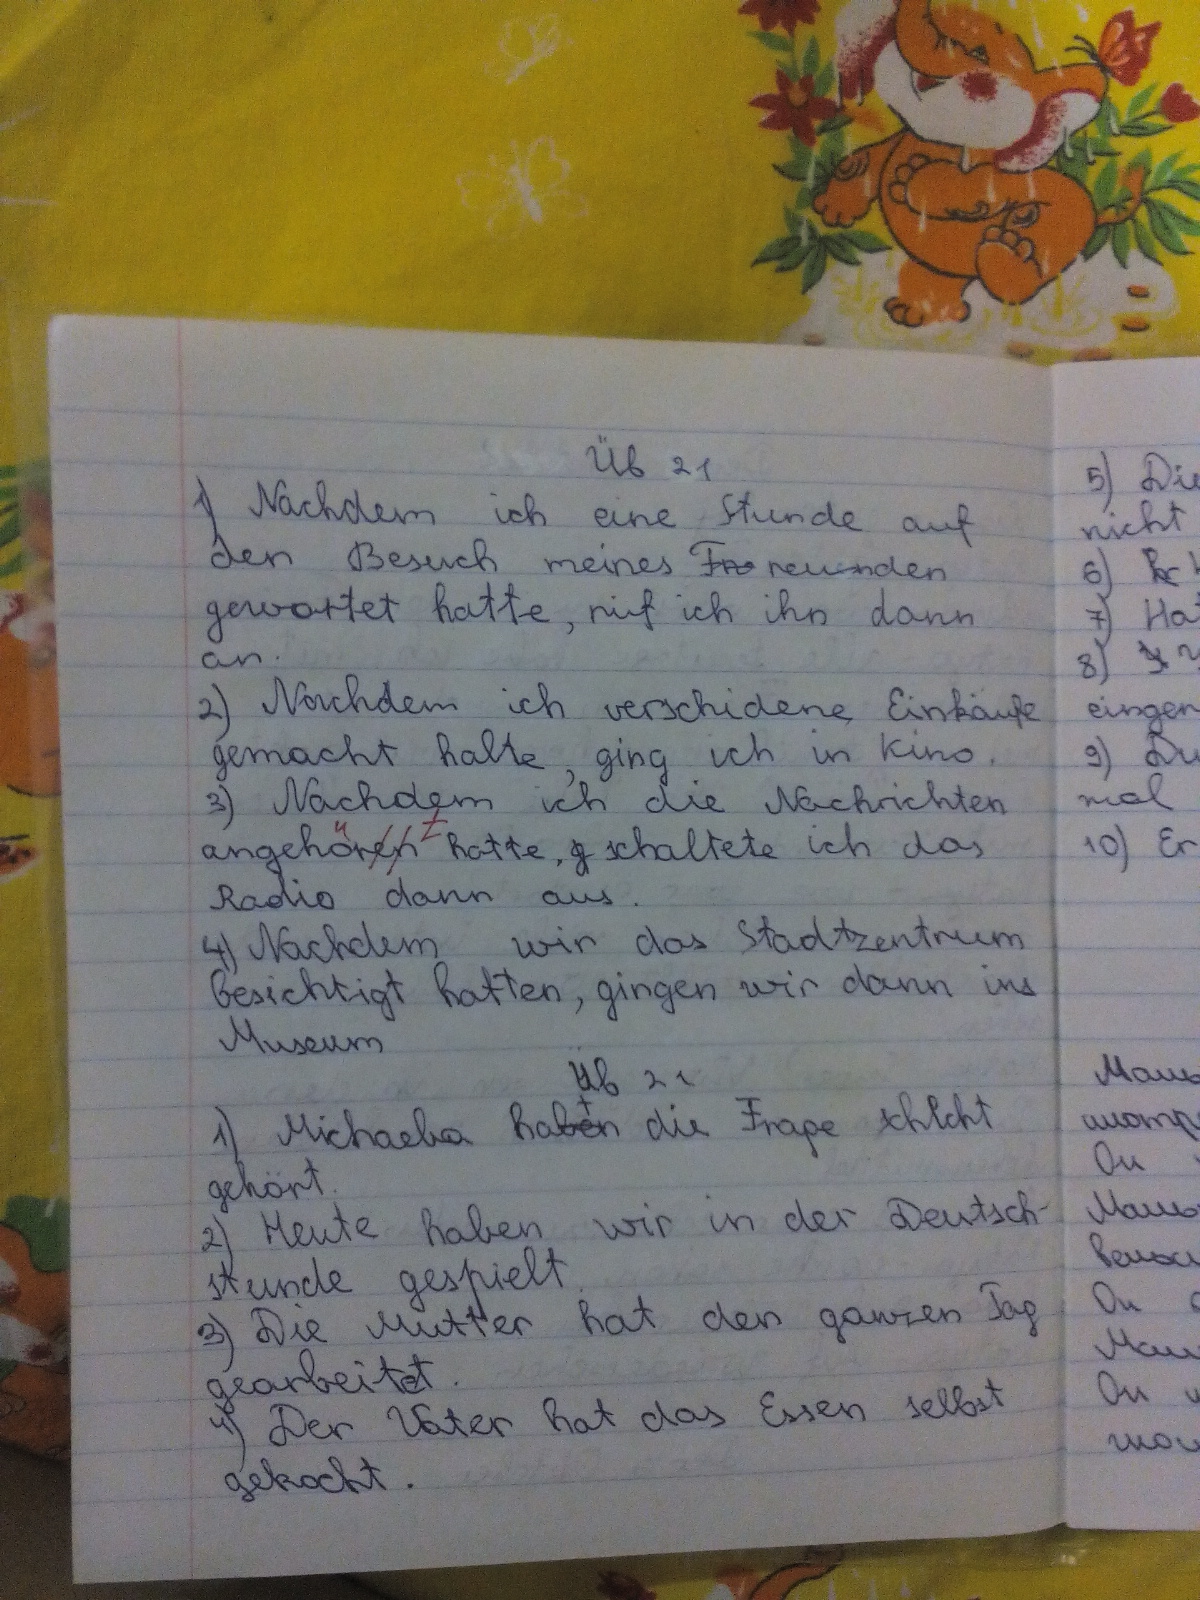 Üb 21
1) Nachdem ich eine Stunde auf
den Besuch meines Freunden
gewartet hatte, rief ich ihn dann
an.
2) Nachdem ich verschidene Einkäufe
gemacht hatte, ging ich in Kino.
3) Nachdem ich die Nachrichten
angehört hatte, schaltete ich das
Radio dann aus.
4) Nachdem wir das Stadtzentrum
besichtigt hatten, gingen wir dann ins
Museum
Üb 21
1) Michaela hat die Frage schlcht
gehört.
2) Heute haben wir in der Deutsch-
stunde gespielt.
3) Die Mutter hat den ganzen Tag
gearbeitet.
4) Der Vater hat das Essen selbst
gekocht.
5) Die
nicht
6)
7)
8)
9)
mal
10) Er